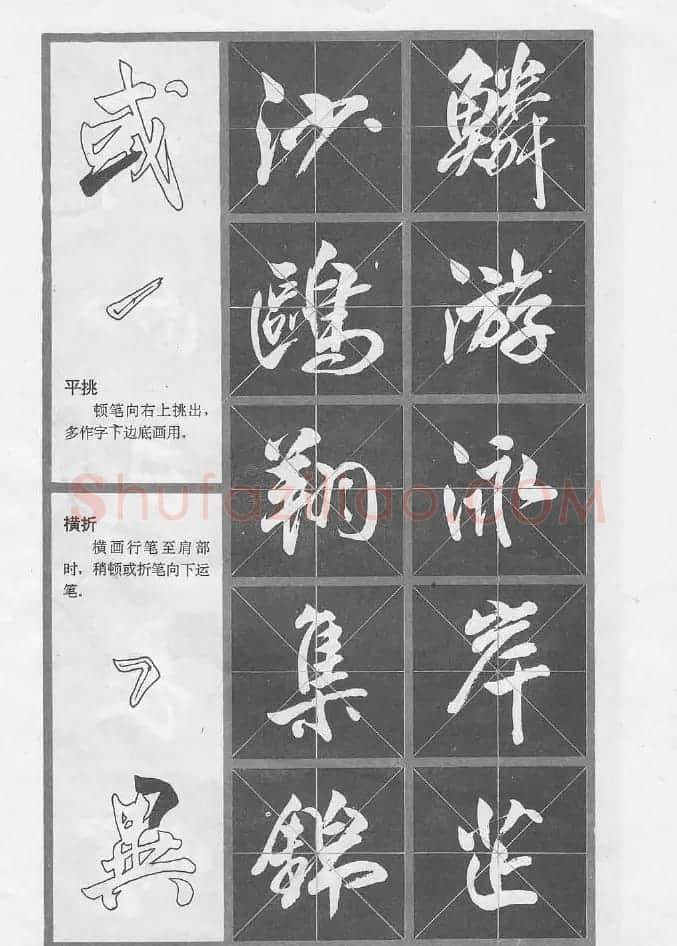 或
平挑
顿笔向右上挑出，
多作字下边底画用。
横折
横画行笔至肩部
时，稍顿或折笔向下运
笔。
異
沙
鷗
翔
集
錦
鱗
游
泳
岸
芷
Shufaziliao.COM